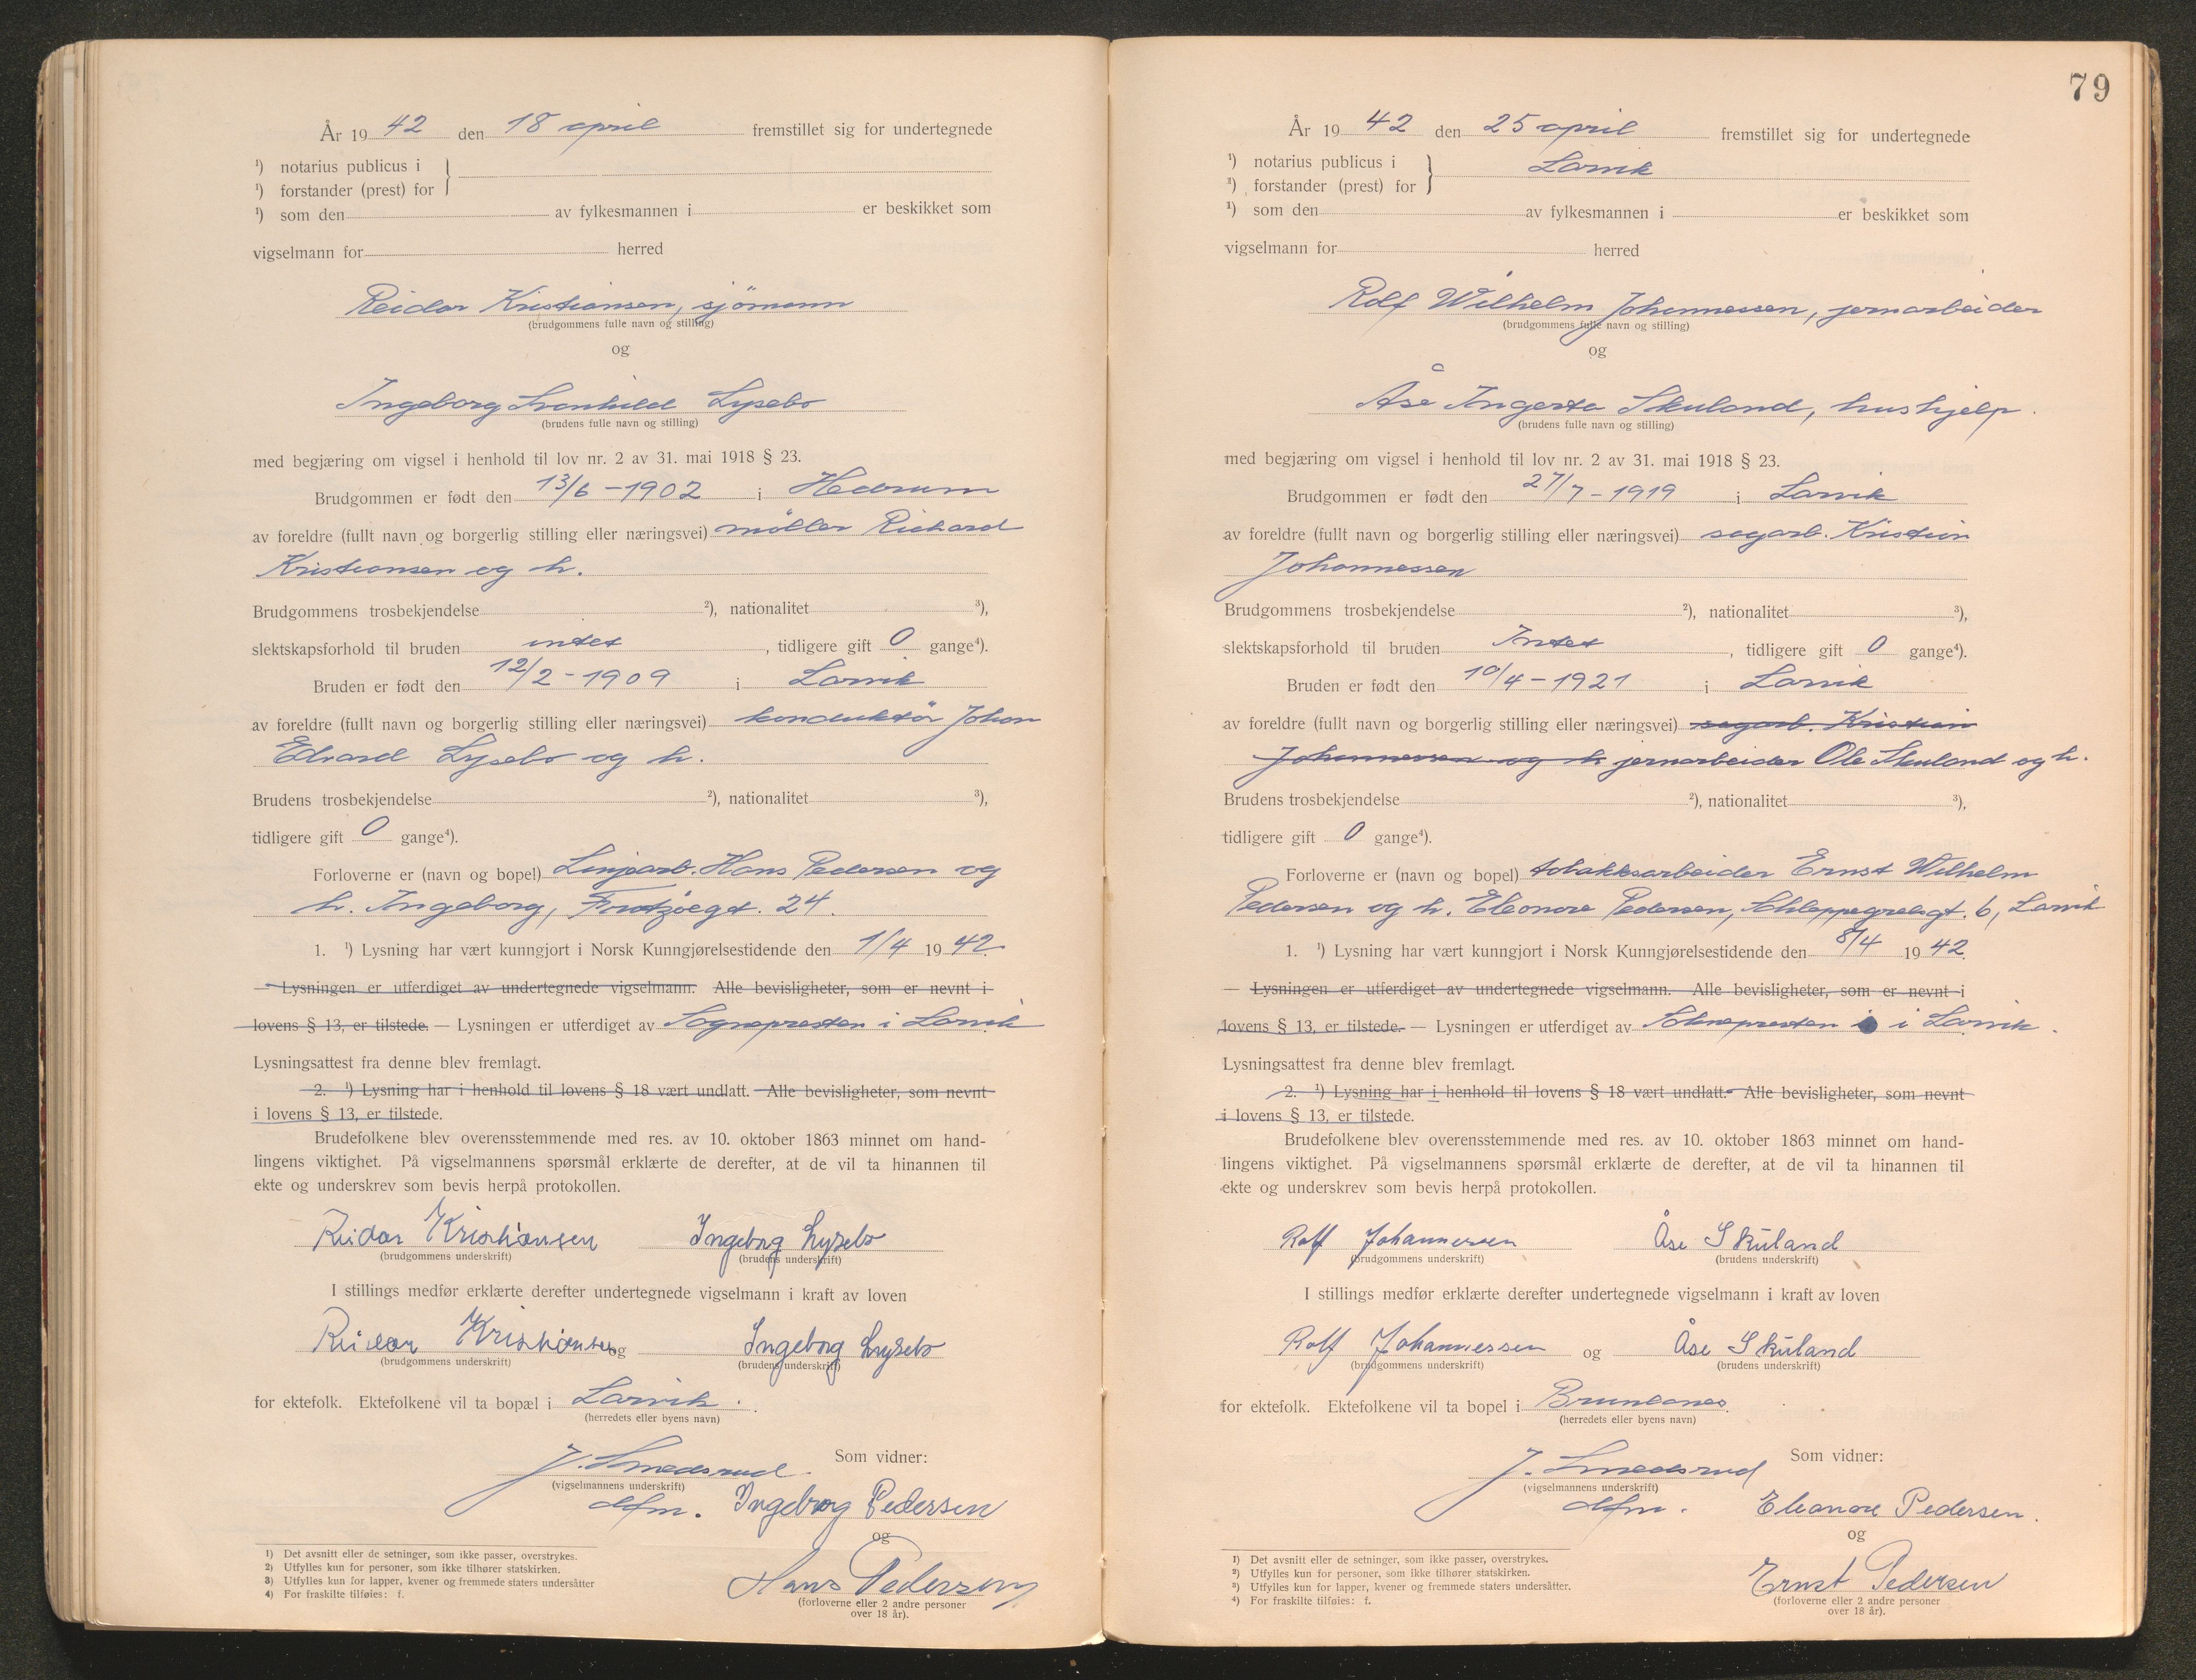 År 19 42 den 18 april fremstillet sig for undertegnede
¹) notarius publicus i
¹) forstander (prest) for
¹) som den av fylkesmannen i er beskikket som
vigselmann for herred
Reidar Kristiansen, sjömann
(brudgommens fulle navn og stilling)
og
Ingeborg Svanhild Lysebo
(brudens fulle navn og stilling)
med begjæring om vigsel i henhold til lov nr. 2 av 31. mai 1918 § 23.
Brudgommen er født den 13/6 - 1902 i Hedrum
av foreldre (fullt navn og borgerlig stilling eller næringsvei) möller Richard
Kristiansen og h.
Brudgommens trosbekjendelse ²), nationalitet ³),
slektskapsforhold til bruden intet, tidligere gift 0 gange⁴).
Bruden er født den 12/2 - 1909 i Larvik
av foreldre (fullt navn og borgerlig stilling eller næringsvei) konduktör Johan
Edvard Lysebo og h.
Brudens trosbekjendelse ²), nationalitet ³),
tidligere gift 0 gange⁴).
Forloverne er (navn og bopel) Linjearb. Hans Pedersen og
h. Ingeborg, 24.
1. ¹) Lysning har vært kunngjort i Norsk Kunngjørelsestidende den 1/4 19 42.
— Lysningen er utferdiget av undertegnede vigselmann. Alle bevisligheter, som er nevnt i
lovens § 13, er tilstede. — Lysningen er utferdiget av Sognepresten i Larvik
Lysningsattest fra denne blev fremlagt.
2. ¹) Lysning har i henhold til lovens § 18 vært undlatt. Alle bevisligheter, som nevnt
i lovens § 13, er tilstede.
Brudefolkene blev overensstemmende med res. av 10. oktober 1863 minnet om hand-
lingens viktighet. På vigselmannens spørsmål erklærte de derefter, at de vil ta hinannen til
ekte og underskrev som bevis herpå protokollen.
Reidar Kristiansen Ingeborg Lysebo
(brudgommens underskrift) (brudens underskrift)
I stillings medfør erklærte derefter undertegnede vigselmann i kraft av loven
Reidar Kristiansen og Ingeborg Lysebo
(brudgommens underskrift) (brudens underskrift)
for ektefolk. Ektefolkene vil ta bopæl i Larvik.
(herredets eller byens navn)
J. Smedsrud Som vidner:
(vigselmannens underskrift)
dfm. Ingeborg Pedersen
og
Hans Pedersen
(forloverne eller 2 andre personer
over 18 år).
1) Det avsnitt eller de setninger, som ikke passer, overstrykes.
2) Utfylles kun for personer, som ikke tilhører statskirken.
3) Utfylles kun for lapper, kvener og fremmede staters undersåtter
4) For fraskilte tilføies: f.
79
År 19 42 den 25 april fremstillet sig for undertegnede
¹) notarius publicus i Larvik
¹) forstander (prest) for
¹) som den av fylkesmannen i er beskikket som
vigselmann for herred
Rolf Wilhelm Johannessen, jernarbeider
(brudgommens fulle navn og stilling)
og
Åse Ingerta Skuland, hushjelp.
(brudens fulle navn og stilling)
med begjæring om vigsel i henhold til lov nr. 2 av 31. mai 1918 § 23.
Brudgommen er født den 27/7 - 1919 i Larvik
av foreldre (fullt navn og borgerlig stilling eller næringsvei) sagarb. Kristian
Johannessen
Brudgommens trosbekjendelse ²), nationalitet ³),
slektskapsforhold til bruden Intet, tidligere gift 0 gange⁴).
Bruden er født den 10/4 - 1921 i Larvik
av foreldre (fullt navn og borgerlig stilling eller næringsvei) sagarb. Kristian
Johannessen og h. jernarbeider Ole Skuland og h.
Brudens trosbekjendelse ²), nationalitet ³),
tidligere gift 0 gange⁴).
Forloverne er (navn og bopel) tobakksarbeider Ernst Wilhelm
Pedersen og h. Eleonore Pedersen, Schleppegrellsgt. 6, Larvik
1. ¹) Lysning har vært kunngjort i Norsk Kunngjørelsestidende den 8/4 19 42.
— Lysningen er utferdiget av undertegnede vigselmann. Alle bevisligheter, som er nevnt i
lovens § 13, er tilstede. — Lysningen er utferdiget av Soknepresten i i Larvik.
Lysningsattest fra denne blev fremlagt.
2. ¹) Lysning har i henhold til lovens § 18 vært undlatt. Alle bevisligheter, som nevnt
i lovens § 13, er tilstede.
Brudefolkene blev overensstemmende med res. av 10. oktober 1863 minnet om hand-
lingens viktighet. På vigselmannens spørsmål erklærte de derefter, at de vil ta hinannen til
ekte og underskrev som bevis herpå protokollen.
Rolf Johannessen Åse Skuland
(brudgommens underskrift) (brudens underskrift)
I stillings medfør erklærte derefter undertegnede vigselmann i kraft av loven
Rolf Johannessen og Åse Skuland
(brudgommens underskrift) (brudens underskrift)
for ektefolk. Ektefolkene vil ta bopel i Brunlanes.
(herredets eller byens navn)
J. Smedsrud Som vidner:
(vigselmannens underskrift)
dfm. Eleonore Pedersen.
og
Ernst Pedersen
(forloverne eller 2 andre personer
over 18 år).
1) Det avsnitt eller de setninger, som ikke passer, overstrykes.
2) Utfylles kun for personer, som ikke tilhører statskirken.
3) Utfylles kun for lapper, kvener og fremmede staters undersåtter.
4) For fraskilte tilføies: f.